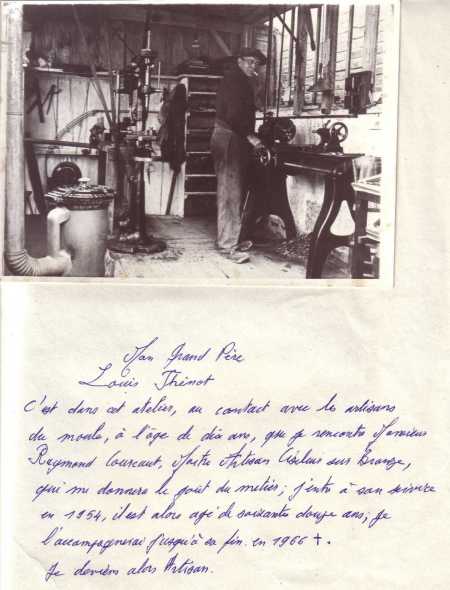 Mon Grand Père
Louis Thénot
C'est dans cet atelier, au contact avec les artisans
du monde, à l'âge de dix ans, que je rencontre Monsieur
Raymond Courcaut, Maitre Artisan Ciseleur sur Bronze,
qui me donnera le goût du metier; j'entre à son service
en 1954, il est alors agé de soixante douze ans; Je
l'accompagnerai jusqu'à sa fin. en 1966 †.
Je deviens alors Artisan.